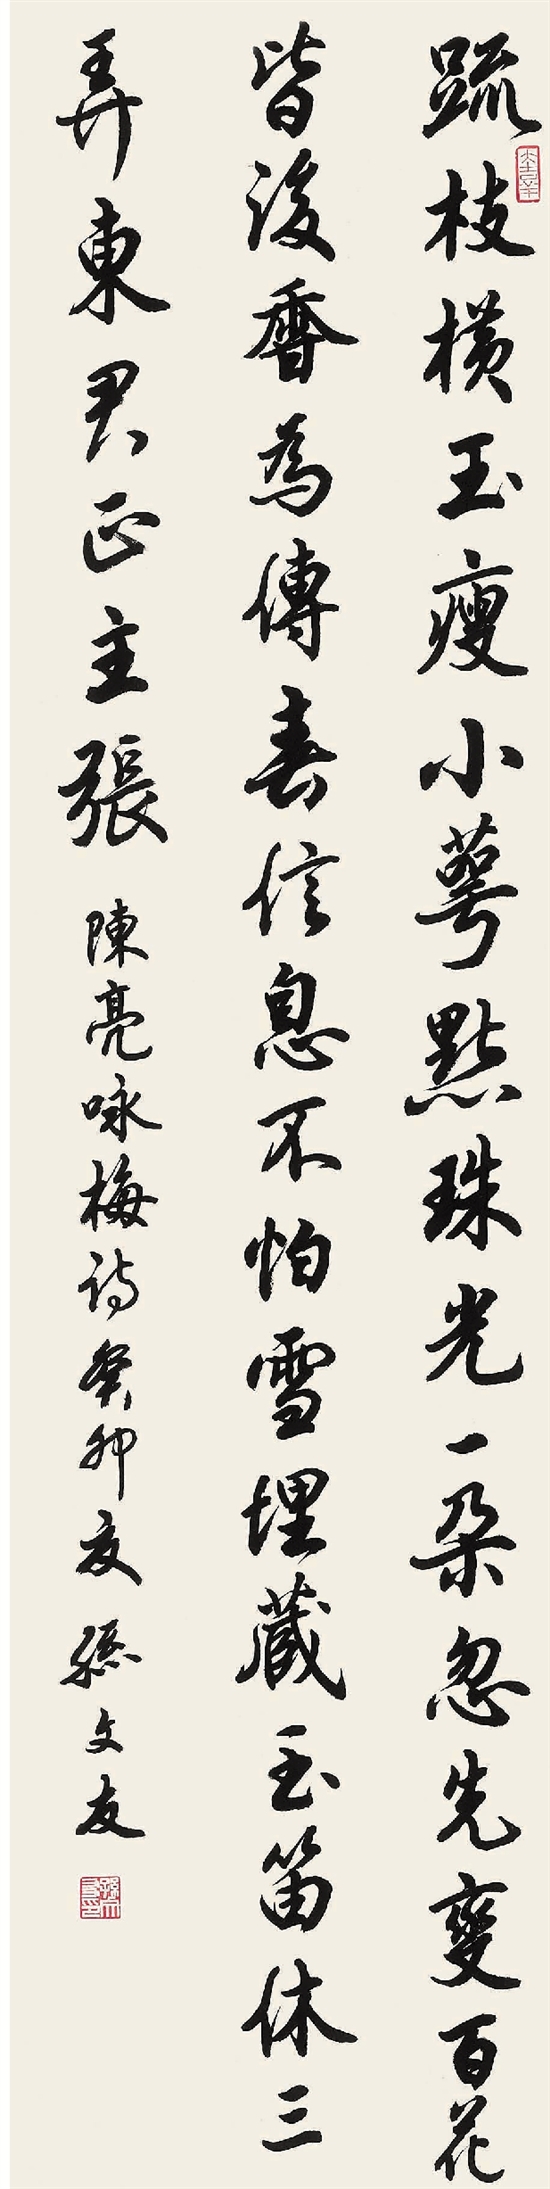 疏枝橫玉瘦小萼點珠光一朵忽先變百花
皆後香為傳春信息不怕雪埋藏玉笛休三
弄東君正主張
陳亮咏梅詩癸卯夏孫文友